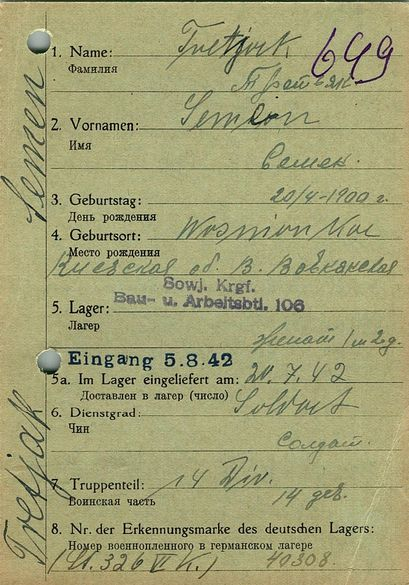 1. Name: Tretjak 649
Фамилия Третьяк
2. Vornamen: Semion
Имя Семен.
3. Geburtstag: 20/4-1900 г.
День рождения
4. Geburtsort:
Место рождения
Киевская об. В.
Sowj. Krgf.
Bau- u. Arbeitsbtl. 106
5. Lager:
Лагер женат 1 м 2 д.
Eingang 5.8.42
5a. Im Lager eingeliefert am: 20.7.42
Доставлен в лагер (число)
6. Dienstgrad: Soldat
Чин солдат.
7. Truppenteil: 14 Div.
Воинская часть 14 див.
8. Nr. der Erkennungsmarke des deutschen Lagers:
Номер военнопленного в германском лагере
(St. 326 VI K.) 40308.
Tretjak Semen